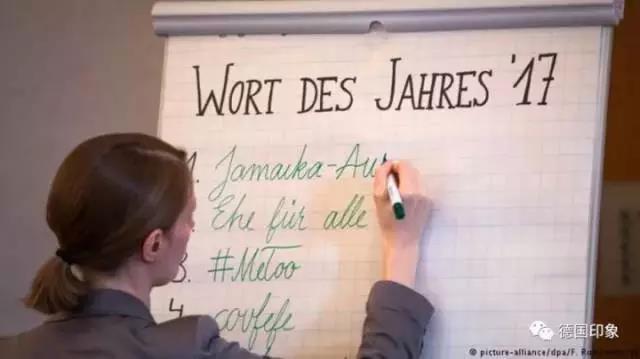 WORT DES JAHRES '17
1. Jamaika-Aus
Ehe für alle
3. #MeToo
4. covfefe
德国印象
© picture-alliance/dpa/F.